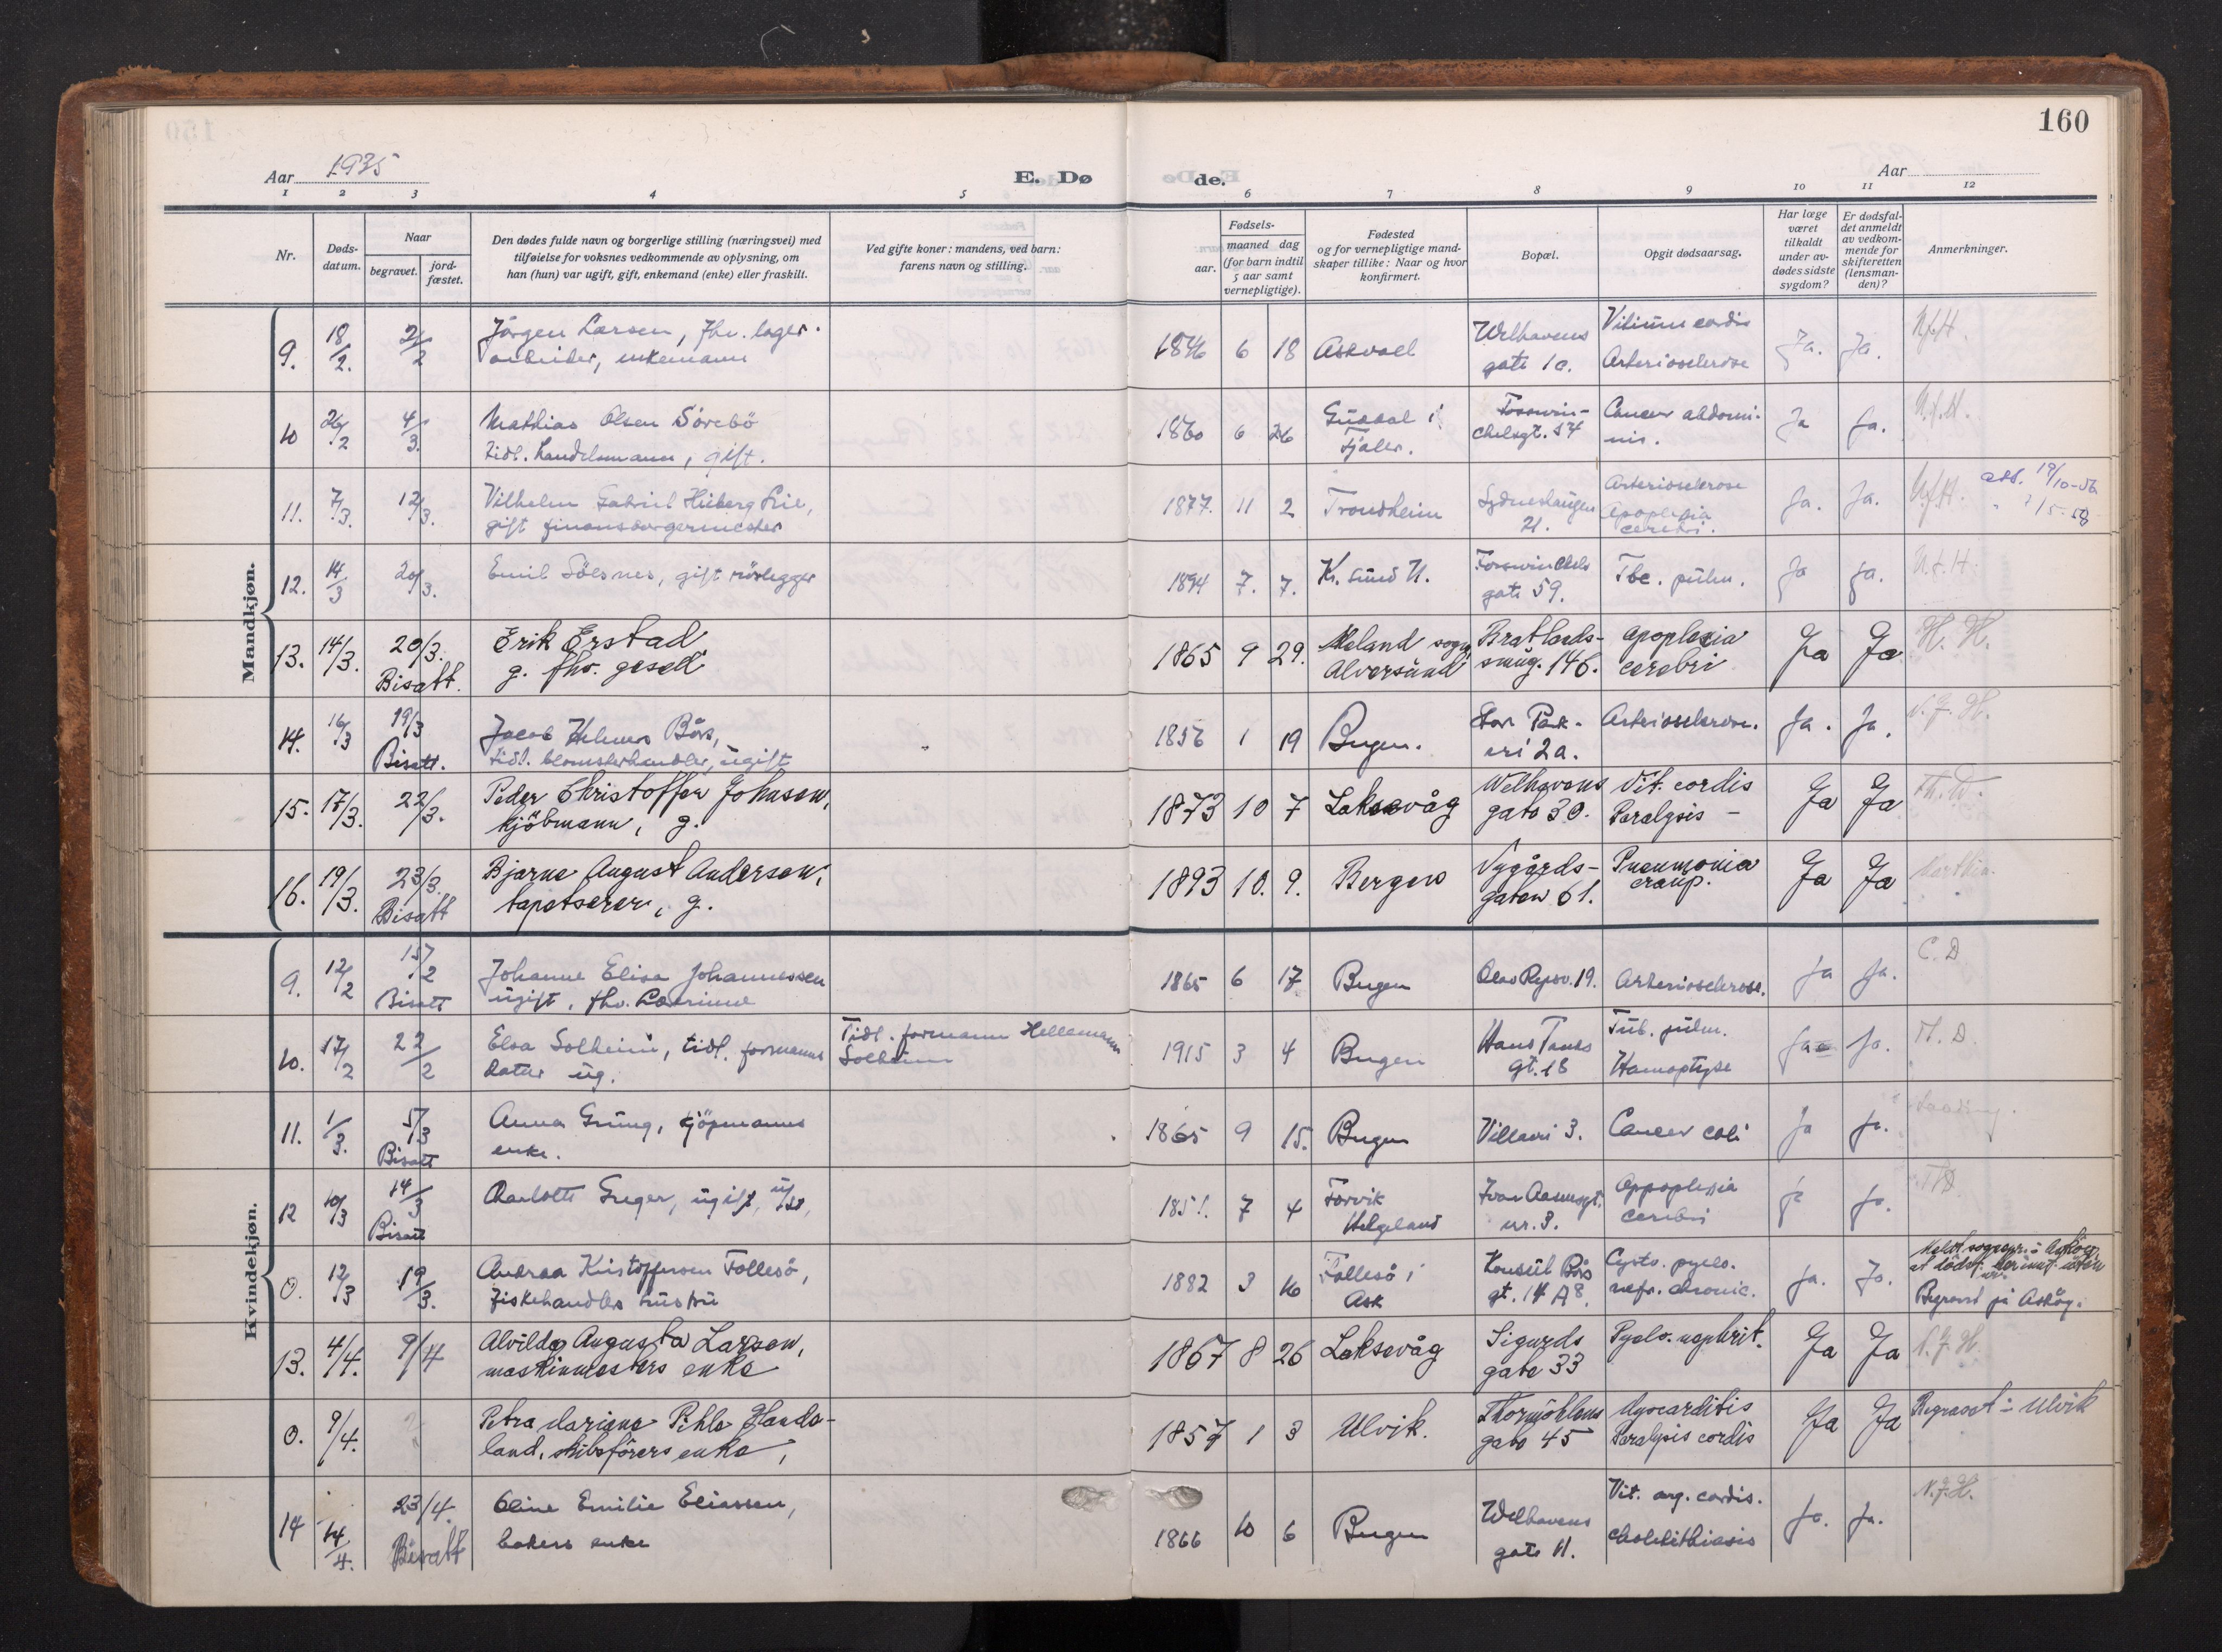 160
Aar 1935
E. Dø
de.
Aar
1 2 3 4 5 6 7 8 9 10 11 12
Nr.
Døds-
datum.
Naar
begravet.
jord-
fæstet.
Den dødes fulde navn og borgerlige stilling (næringsvei) med
tilføielse for voksnes vedkommende av oplysning, om
han (hun) var ugift, gift, enkemand (enke) eller fraskilt.
Ved gifte koner: mandens, ved barn:
farens navn og stilling.
Fødsels-
aar.
maaned dag
(for barn indtil
5 aar samt
vernepligtige).
Fødested
og for vernepligtige mand-
skaper tillike: Naar og hvor
konfirmert.
Bopæl.
Opgit dødsaarsag.
Har læge
været
tilkaldt
under av-
dødes sidste
sygdom?
Er dødsfal-
det anmeldt
av vedkom-
mende for
skifteretten
(lensman-
den)?
Anmerkninger.
Mandkjøn.
9. 18/2. 21/2 Jörgen Larsen, fhv. lager-
arbeider, enkemann
1846 6 18 Askvoll Welhavens
gate 1c. Vitium cordis
Arteriosclerose Ja. Ja.
10 26/2 4/3. Mathias Olsen Sörebö
tidl. handelsmann, gift.
1860 6 26 Guddal i
Fjaler. Fosswin-
chelsgt. 54 Cancer abdomi-
nis. Ja Ja.
11. 7/3. 12/3. Vilhelm Gabriel Heiberg Lie,
gift finansborgermester
1877. 11 2 Trondheim Sydneshaugen
21. Arteriosclerose
Apoplexia
cerebri. Ja. Ja. att. 19/10-56
12. 14/3 20/3. Emil Sölsnes, gift rörlegger
1894 7. 7. Kr.sund N. Fosswinchels
gate 59. Tbc. pulm. Ja Ja. N.f.H.
13. 14/3. 20/3. Bisatt. Erik Erstad
g. fhv. gesell
1865 9 29. Meland sogn
Alversund Bratlands-
smug. 14b. Apoplexia
cerebri Ja Ja H. H.
14. 16/3 19/3 Bisatt. Jacob Helmers Börs,
tidl. blomsterhandler, ugift
1856 1 19 Bergen. Store Park-
vei 2a. Arteriosclerose. Ja. Ja. N.f.H.
15. 17/3. 22/3. Peder Christoffer Johnsen,
kjöbmann, g.
1873 10 7 Laksevåg Welhavens
gate 30. Vit. cordis
Paralysis – Ja Ja
16. 19/3. 23/3. Bisatt Bjarne August Andersen,
tapetserer, g.
1893 10. 9. Bergen Nygårds-
gaten 61. Pneumonia
croup. Ja Ja
Kvindekjøn.
9. 12/2 15/2 Bisatt Johanne Elisa Johannessen
ugift, fhv. Lærerinne
1865 6 17 Bergen Olav Ryesv. 19. Arteriosclerose. Ja Ja. C. D
10. 17/2 22/2 Elsa Solheim, tidl. formanns
datter ug.
Tidl. formann
Solheim
1915 3 4 Bergen Hans Tanks
gt. 18 Tub. pulm.
Hæmoptyse Ja Ja.
11. 1/3. 5/3 Bisatt Anna Grung, kjöpmanns
enke.
1865 9 15. Bergen Villavei 3. Cancer coli Ja Ja.
12 10/3 14/3 Bisatt Charlotte Greger, ugift,
1851. 7 4 Forvik
Helgeland Ivar Aasensgt.
nr. 3. Appoplexia
cerebri Ja Ja.
0. 12/3 19/3. Andrea Kristoffersen Follesö,
fiskehandlers hustru
1882 3 16 Follesö i
Ask Konsul Börs
gt. 14 A8. Cysto. pyelo.
nefr. chronic. Ja. Ja. Meldt sognepr. i Asköy,
Begravet på Asköy.
13. 4/4. 9/4 Alvilda Augusta Larsen,
maskinmesters enke
1867 8 26 Laksevåg Sigurds
gate 33 Pyelo. nephrit. Ja Ja N.f.H.
0. 9/4. Petra Mariane Pihle Handa-
land, skibsförers enke,
1857 1 3 Ulvik. Thormöhlens
gate 45 Myocarditis
Paralysis cordis Ja Ja Begravet i Ulvik
14 14/4. 23/4. Bisatt Oline Emilie Eliassen,
bakers enke
1866 10 6 Bergen Welhavens
gate 11. Vit. org. cordis.
cholelithiasis Ja. Ja. N.f.H.